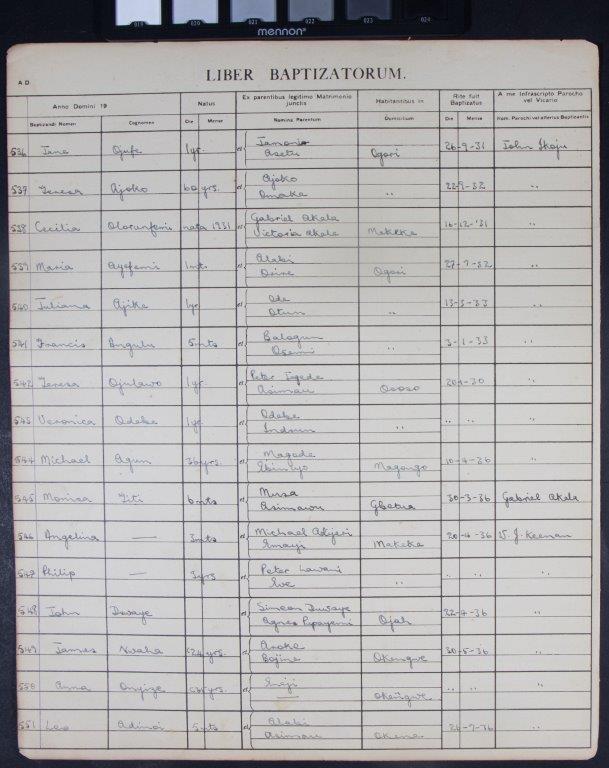 019 020 021 022 023 024
mennon
LIBER BAPTIZATORUM.
A D
Anno Domini 19 Natus Ex parentibus legitimo Matrimonio junctis Habitantibus in Rite fuit Baptizatus A me Infrascripto Parocho vel Vicario
Baptizandi Nomen Cognomen Die Mense Nomina Parentum Domicilium Die Mense Nom. Parochi vel alterius Baptizantis
536 Jane 1yr. et Asetu Ogori 26-9-31 John Shoju
537 Teresa Ajoko 60 yrs. et Ajoko Omaka ,, 22-9-32 ,,
538 Cecilia Olorunfemi nata 1931 et Gabriel Akala Victoria Akala Makeke 16-12-'31 ,,
539 Maria Ayefemi 1mt. et Alabi Osire Ogori 27-7-32 ,,
540 Juliana Ajike 1yr et Ode Otun ,, 13-3-33 ,,
541 Francis Angulu 5mts et Balogun Osemi ,, 3-1-33 ,,
542 Teresa Ojulawo 1yr. et Peter Asimau Ososo ,,
543 Veronica Odeke 1yr. et Odeke ,, ,, ,, ,,
544 Michael Agun 36yrs. et Magode Magongo 10-4-36 ,,
545 Monica Titi 6mts et Musa Asimawu 30-3-36 Gabriel Akala
546 Angelina — 3mts et Michael Makeke 20-4-36 W. J. Keenan
547 Philip — 3yrs et Peter Lawani ,, ,, ,, ,,
548 John Duvaye et Simeon Duvaye Agnes Ojah 22-4-36 ,,
549 James Nwaha 24 yrs. et Aroke Bojine Okengwe 30-5-36 ,,
550 Anna Onyize yrs. et — Okengwe ,, ,, ,,
551 Leo Adinoi 5mts et Alabi Asimau Okene 26-7-36 ,,